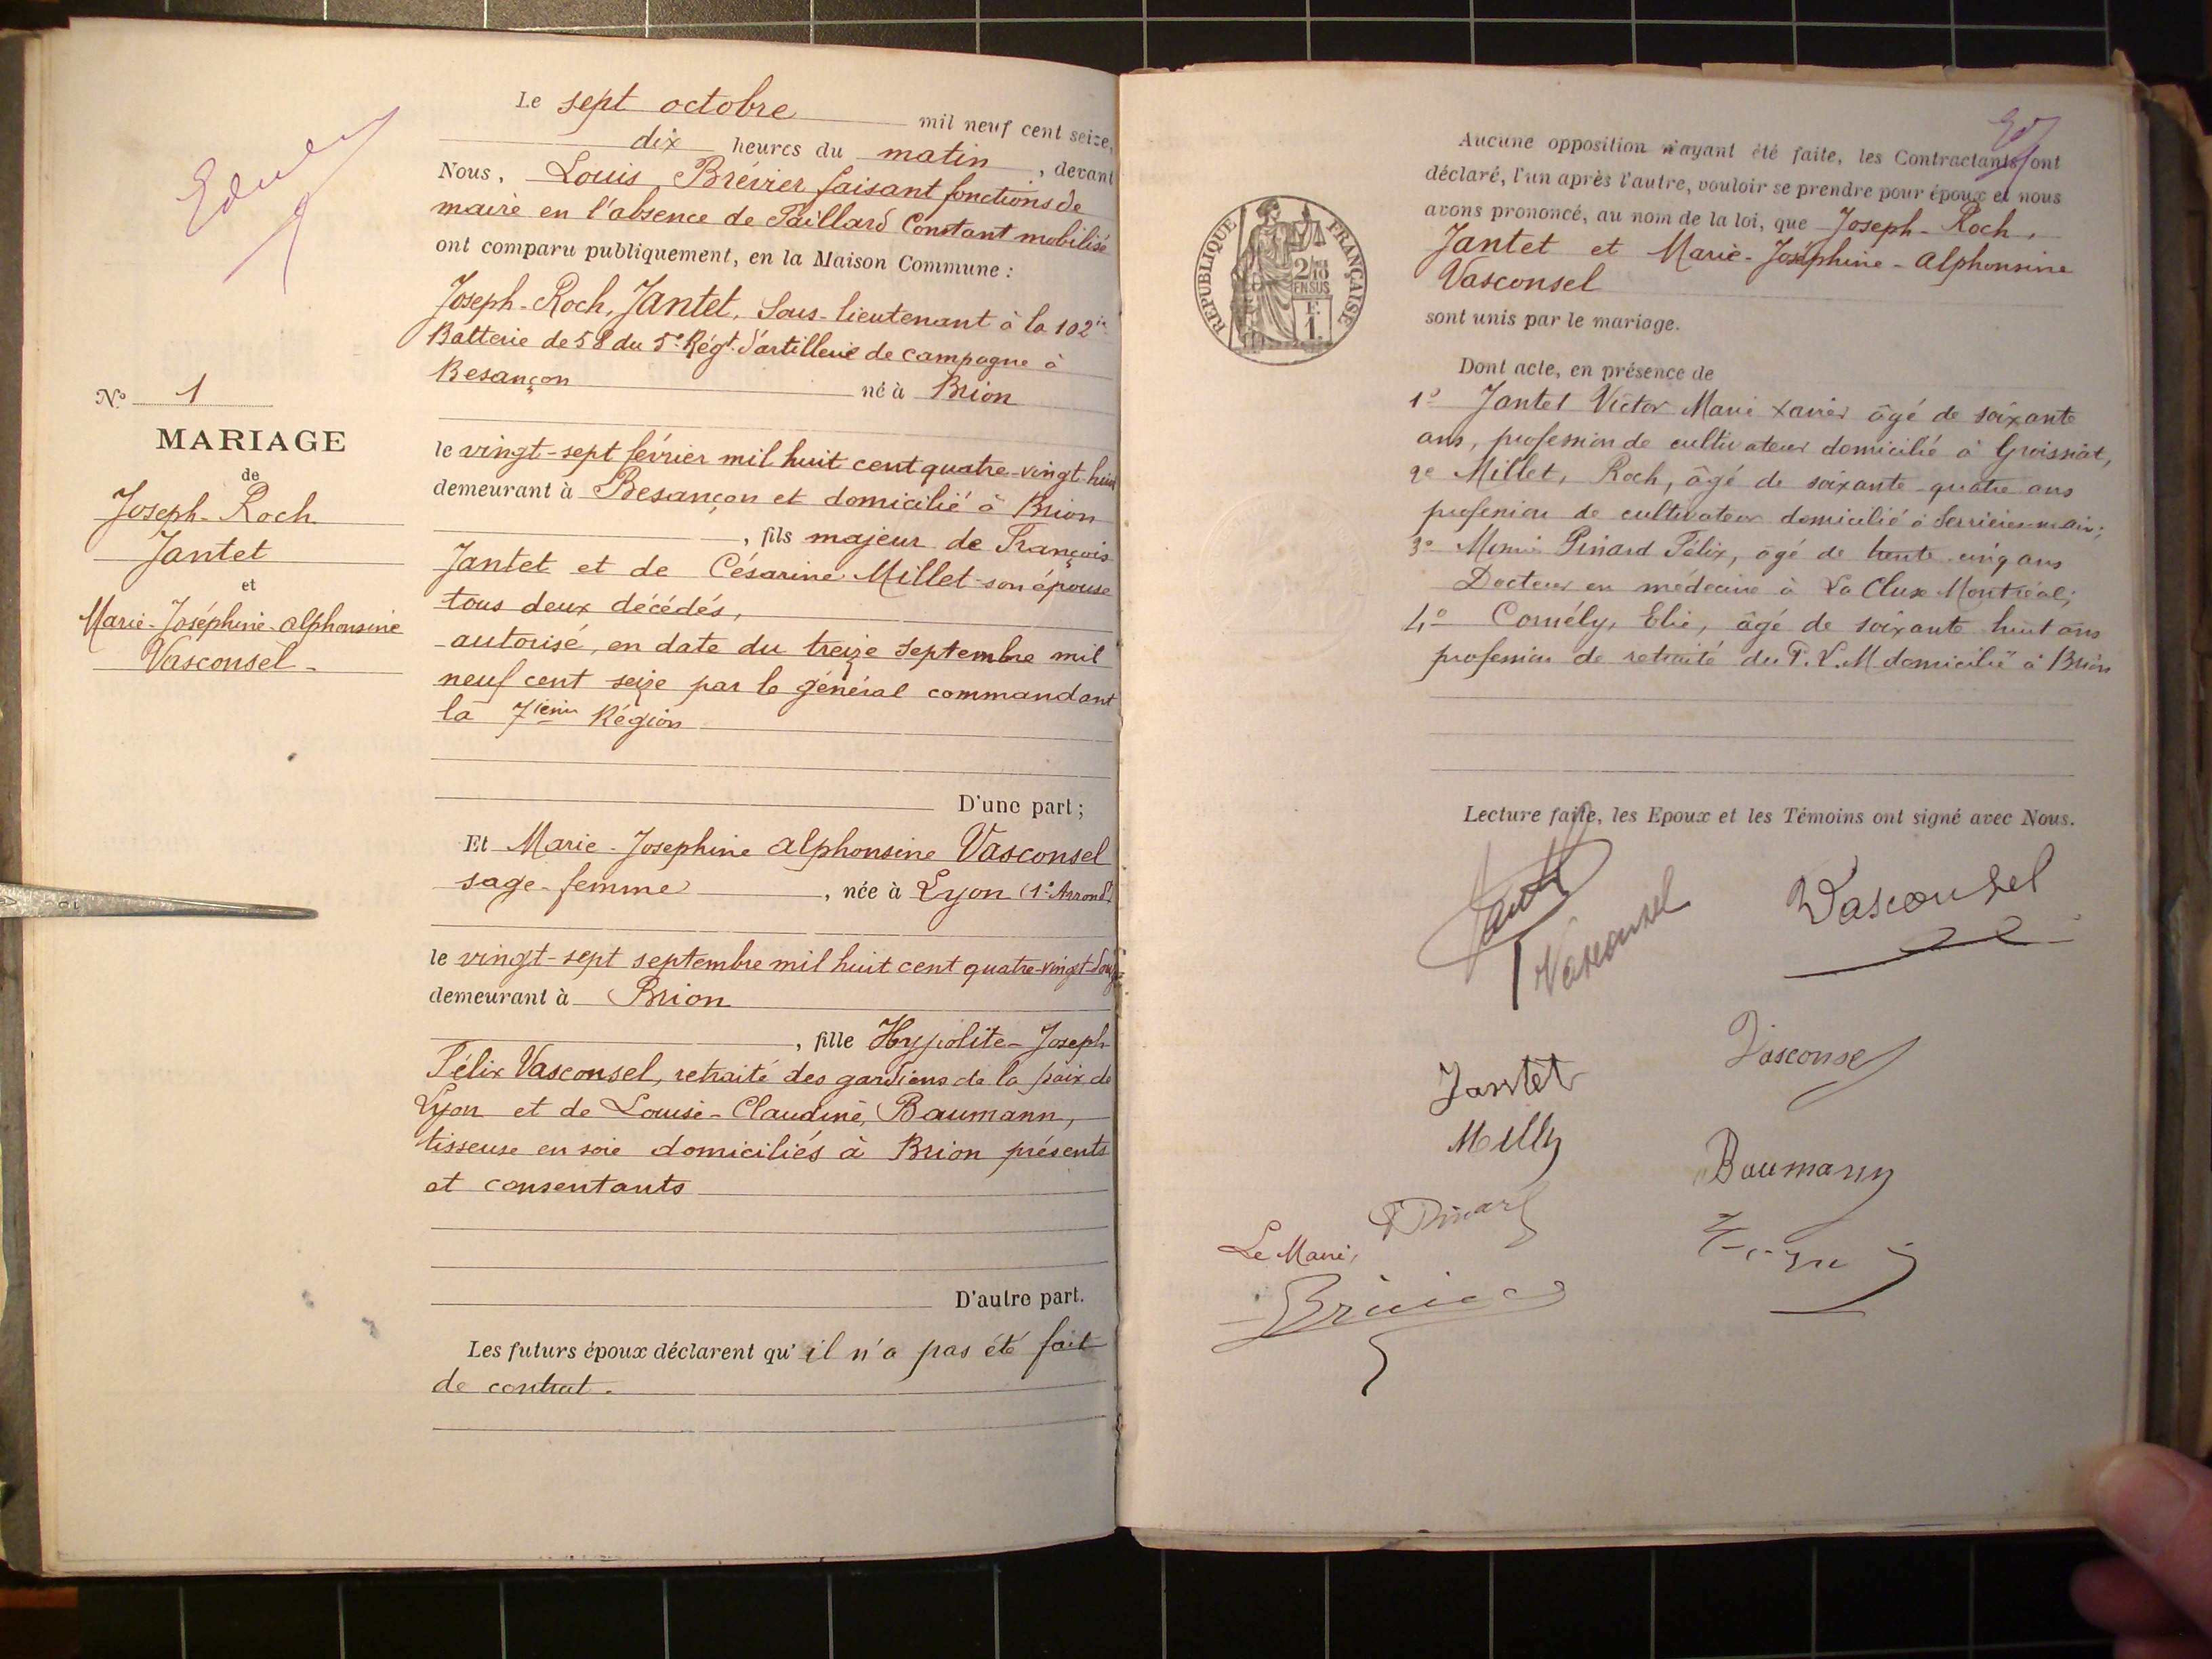 Le sept octobre mil neuf cent seize,
dix heures du matin, devant
Nous, Louis Brévier faisant fonctions de
maire en l'absence de Paillard Constant mobilisé
ont comparu publiquement, en la Maison Commune :
Joseph-Roch, Jantet, Sous-lieutenant à la 102e
Batterie de 58 du 5e Régt d'artillerie de campagne à
Besançon né à Brion
le vingt-sept février mil huit cent quatre-vingt-huit
demeurant à Besançon et domicilié à Brion
, fils majeur de François
Jantet et de Césarine Millet son épouse
tous deux décédés,
autorisé, en date du treize septembre mil
neuf cent seize par le général commandant
la 7ième Région
D'une part ;
Et Marie-Josephine Alphonsine Vasconsel
sage-femme, née à Lyon (1e Arrondt)
le vingt-sept septembre mil huit cent quatre-vingt-douze
demeurant à Brion
, fille Hypolite-Joseph
Félix Vasconsel, retraité des gardiens de la paix de
Lyon et de Louise-Claudine, Baumann,
tisseuse en soie domiciliés à Brion présents
et consentants
D'autre part.
Les futurs époux déclarent qu'il n'a pas été fait
de contrat.
N° 1
MARIAGE
de
Joseph-Roch
Jantet
et
Marie-Joséphine-Alphonsine
Vasconsel
Aucune opposition n'ayant été faite, les Contractants ont
déclaré, l'un après l'autre, vouloir se prendre pour époux et nous
avons prononcé, au nom de la loi, que Joseph-Roch,
Jantet et Marie-Joséphine-Alphonsine
Vasconsel
sont unis par le mariage.
RÉPUBLIQUE FRANÇAISE
2/10
EN SUS
F.
1.
Dont acte, en présence de
1° Jantet Victor Marie Xavier âgé de soixante
ans, profession de cultivateur domicilié à Groissiat,
2e Millet, Roch, âgé de soixante-quatre ans
profession de cultivateur domicilié à
3° Pinard Félix, âgé de trente-cinq ans
Docteur en médecine à La Cluse Montréal;
4° Cornély, Elie, âgé de soixante huit ans
profession de retraité du P.L.M domicilié à Brion
Lecture faite, les Epoux et les Témoins ont signé avec Nous.
Jantet
Vasconsel
Vasconsel
Vasconsel
Jantet
Millet
Baumann
Pinard
Le Maire,
Brévier